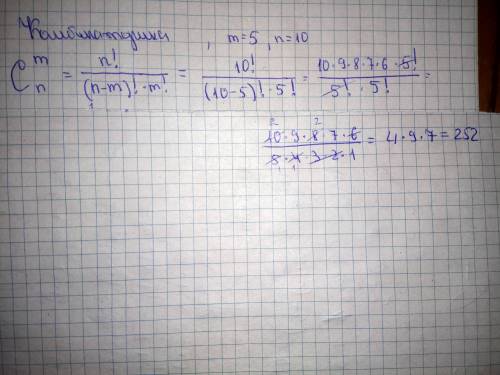 Комбинаторика , m=5 , n=10
C_n^m = n! / ((n-m)! · m!) = 10! / ((10-5)! · 5!) = 10·9·8·7·6·5! / (5! · 5!) =
10·9·8·7·6 / (5·4·3·2·1) = 4·9·7 = 252